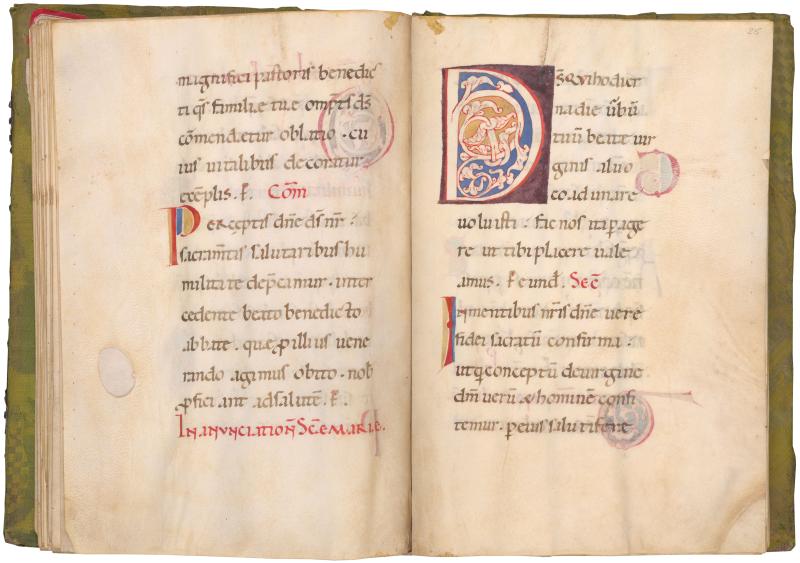 magnifici pastoris benedic
ti q̄s familie tue om̄ptis d̄s
cōmendetur oblatio · cu
ius uitalibus decoratur
exēplis · P̄ · Cōm
Perceptis dn̄e ds̄ nr̄ ·
sacram̄tis salutaribus hu
militate dep̄camur · inter
cedente beato benedicto
abbate · que p illius uene
rando agimus obitu · nob
pficiant ad salutē · P̄ ·
In anunciation̄ Sc̄e Marie.
25
D̄s qui hodier
na die ūbū
tuū beate uir
ginis aluo
coadunare
uoluisti · fac nos ita page
re ut tibi placere uale
amus · P̄ eund̄ · Sec̄
In mentibus nr̄is dn̄e uere
fidei sacratū confirma ·
ut q conceptū de uirgine
dm̄ uerū & hominē confi
temur · p eius salutifere